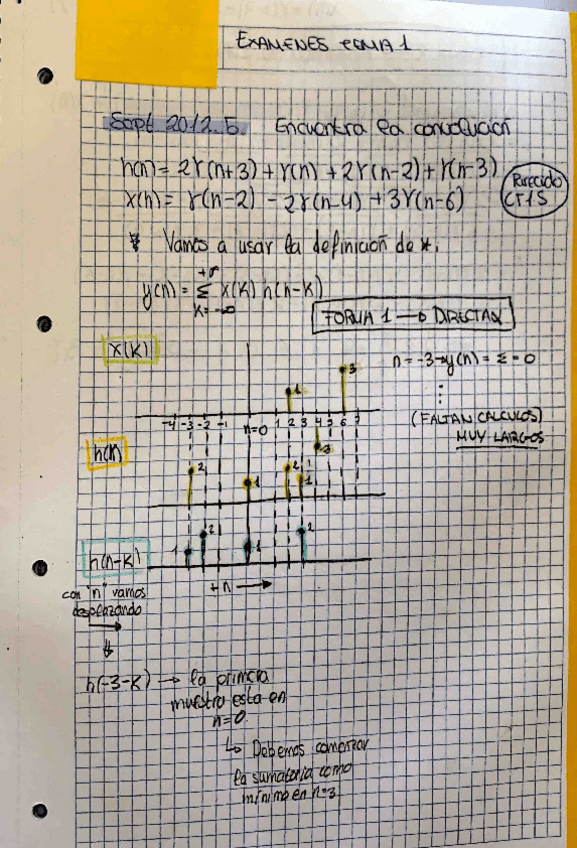 EXAMENES TEMA 1
Sept 2012.5. Encuentra la convolución
h(n) = 2γ(n+3) + γ(n) + 2γ(n-2) + γ(n-3)
x(n) = γ(n-2) - 2γ(n-4) + 3γ(n-6)
Parecido
CT1S
* Vamos a usar la definición de *.
y(n) = Σ x(k) h(n-k)
k=-∞
FORMA 1 → DIRECTA
x(k)
n = -3 → y(n) = Σ = 0
1
3
-4 -3 -2 -1 n=0 1 2 3 4 5 6 7
(FALTAN CALCULOS)
MUY LARGOS
h(k)
2 1 2 1
h(n-k)
1 2 1 2
+n →
con "n" vamos
desplazando
h(-3-k) → la primera
muestra esta en
n=0.
↳ Debemos comenzar
la sumatoria como
mínimo en n=3